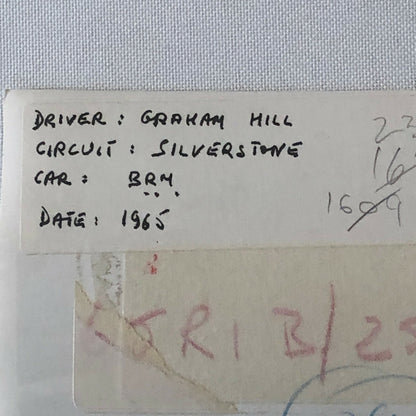 DRIVER: GRAHAM HILL
CIRCUIT: SILVERSTONE
CAR: BRM
DATE: 1965
16
1609
R1 B/25